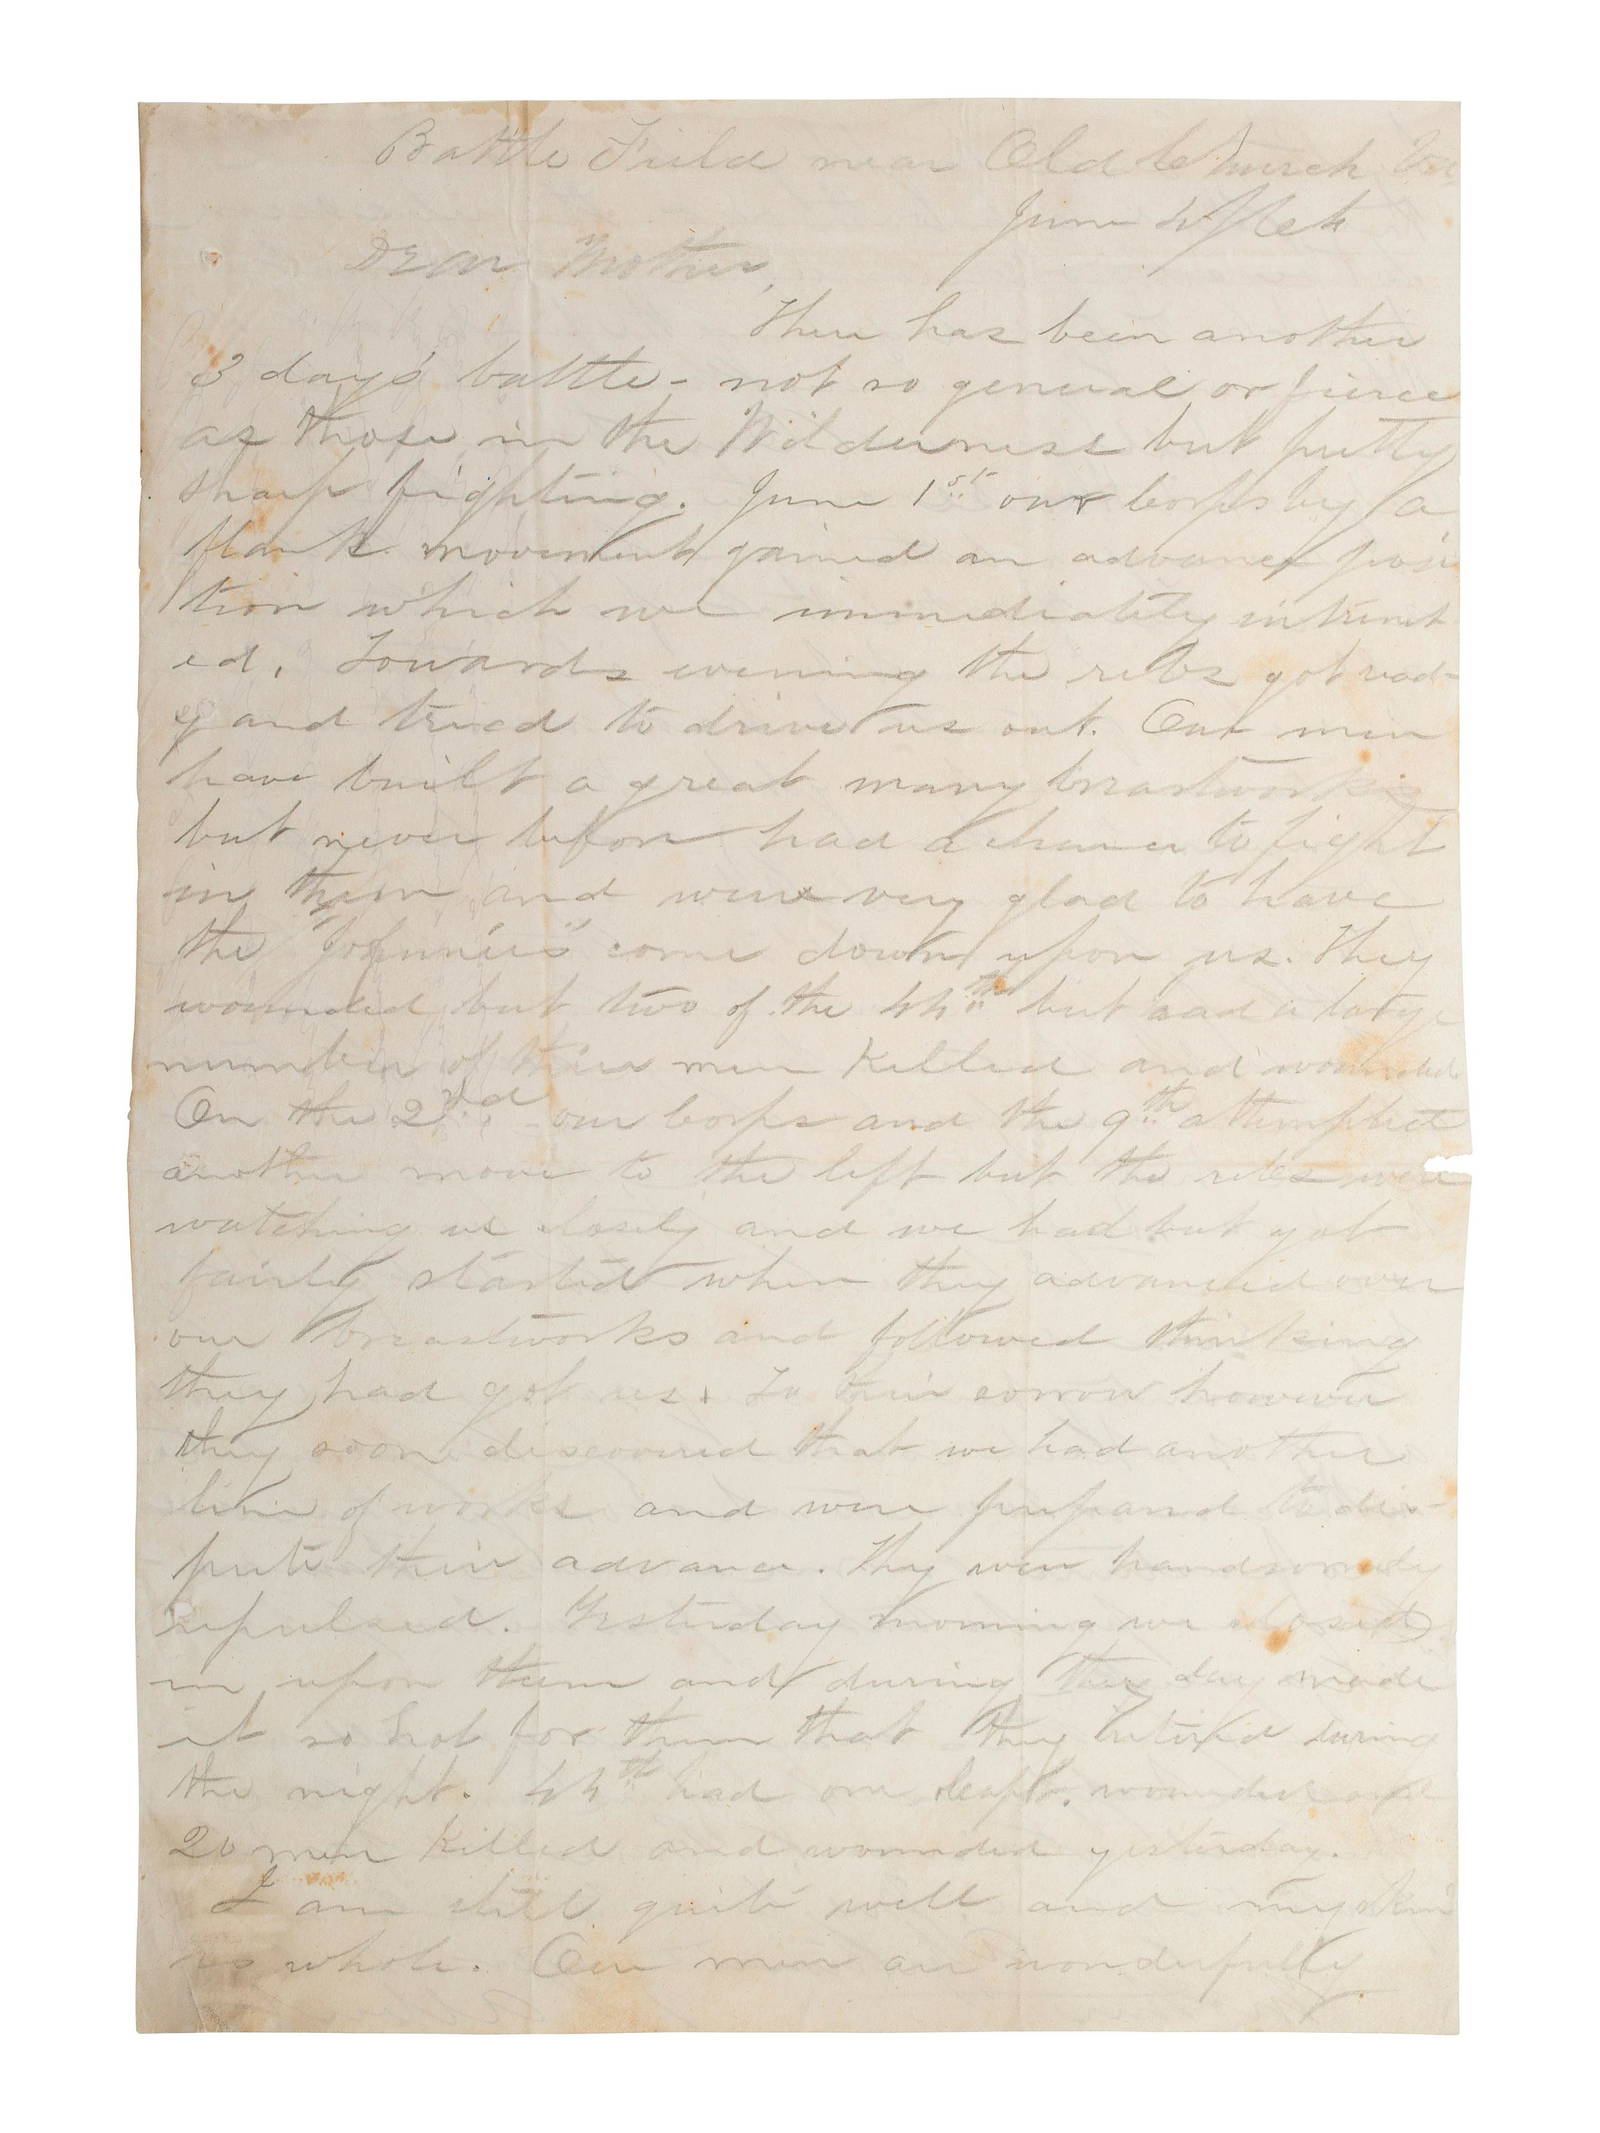 Battle Field near Old Church Va
June 4/64
Dear Mother,
There has been another
3 day's battle - not so general or fierce
as those in the Wilderness but pretty
sharp fighting. June 1st our Corps by a
flank movement gained an advance posi
tion which we immediately intrench
ed. Towards evening the rebs got read-
y and tried to drive us out. Our men
have built a great many breastworks
but never before had a chance to fight
in them and were very glad to have
the "Johnnies" come down upon us. They
wounded but two of the 44th but had a large
number of their men killed and wounded
On the 2nd our Corps and the 9th attempted
another move to the left but the rebs were
watching us closely and we had but got
fairly started when they advanced over
our breastworks and followed thinking
they had got us. To their sorrow however
they soon discovered that we had another
line of works and were prepared to dis-
pute their advance. They were handsomely
repulsed. Yesterday morning we closed
in upon them and during the day made
it so hot for them that they retired during
the night. 44th had one Capt. wounded and
20 men killed and wounded yesterday.
I am still quite well and my skin
is whole. Our men are wonderfully